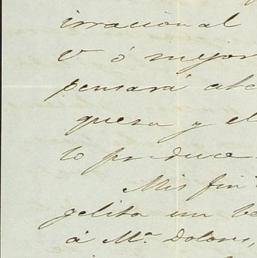 irracional
v ó mejor
pensará
quesa y el
lo produce
Mis fin
gelita un be
á Mª. Dolores,